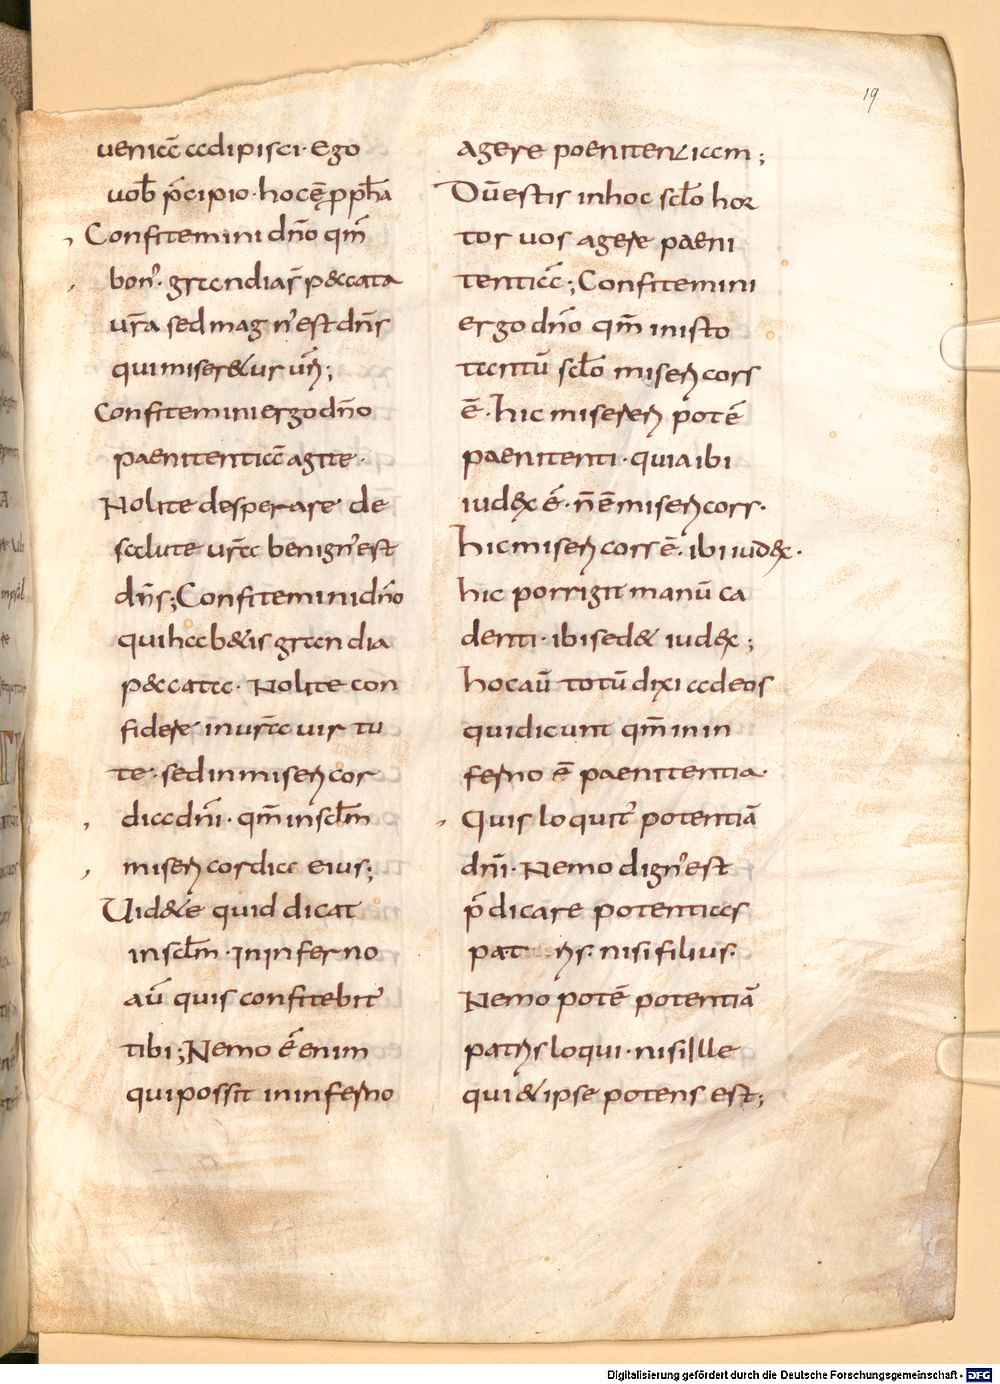 19
ueniā adipisci· Ego
uob p̄cipio· hoc ę̄ p pħa
Confitemini dn̄o qm̄
bon᾿· grandia s̄ peccata
ur̄a sed magn᾿ est dn̄s
qui miseretur ur̄i;
Confitemini ergo dn̄o
paenitentiā agite·
Nolite desperare de
salute ur̄a benign᾿ est
dn̄s; Confitemini dn̄o
qui habetis grandia
peccata· Nolite con
fidere in ur̄a uir tu
te· sed in misericor
dia dn̄i· qm̄ in sclm̄
misericordia eius;
Uidete quid dicat
in sclm̄· In inferno
aū quis confitebit᾿
tibi; Nemo ē enim
qui possit in inferno
agere poenitentiam;
Dū estis in hoc sclo hor
tor uos agere paeni
tentiā; Confitemini
ergo dn̄o qm̄ in isto
tantū sclo misericors
ē· hic misereri potē
paenitenti· quia ibi
iudex ē· n̄ ē misericors·
hic misericors ē· ibi iudex·
hic porrigit manū ca
denti· ibi sedet iudex;
hoc aū totū dixi ad eos
qui dicunt qm̄ in in
ferno ē paenitentia·
Quis loquit᾿ potentiā
dn̄i· Nemo dign᾿ est
p̄dicare potentias
patris· nisi filius·
Nemo potē potentiā
patris loqui· nisi Ille
qui et ipse potens est;
Digitalisierung gefördert durch die Deutsche Forschungsgemeinschaft - DFG